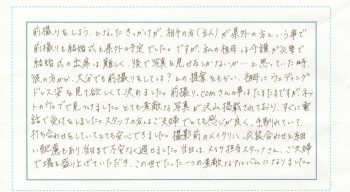 前撮りをしよう、となったきっかけが、相手の方(主人)が県外の方という事で
前撮りも結婚式も県外の予定でした。ですが、私の祖母は介護が必要で
結婚式の出席は難しく、後で写真を見せるしかないか…と思っていた時
彼の方から、大分でも前撮りをしては?との提案をもらい、祖母にウェディング
ドレス姿を見て欲しくて決めました。前撮り.comさんの事はたまたまですがネ
ットのウェブで見つけました。とても素敵な写真が沢山掲載されており、すぐに電
話で受付をしました。スタッフの方はご夫婦でとても感じが良く、手馴れていて、
打ち合わせをしていてとても安心できました。撮影前のメイクリハ、衣装合わせと細
い配慮もあり、当日まで不安なく過せました。当日は、メイク担当スタッフさん、ご夫婦
で場を盛り上げていただき、この世でたった一つの素敵なアルバムになりました。